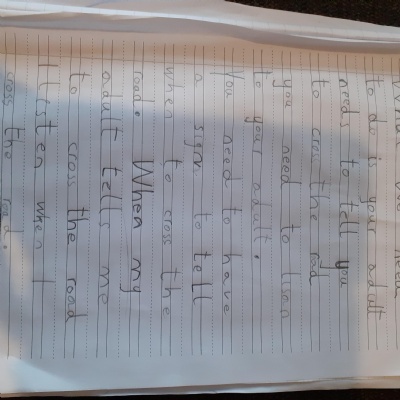 What you need
to do is your adult
needs to tell you
to cross the rad
you need to lisan
to your adult.
You need to have
a sign to tell
when to cross the
road. When my
adult tells me
to cross the road
I listen when I
cross the road.